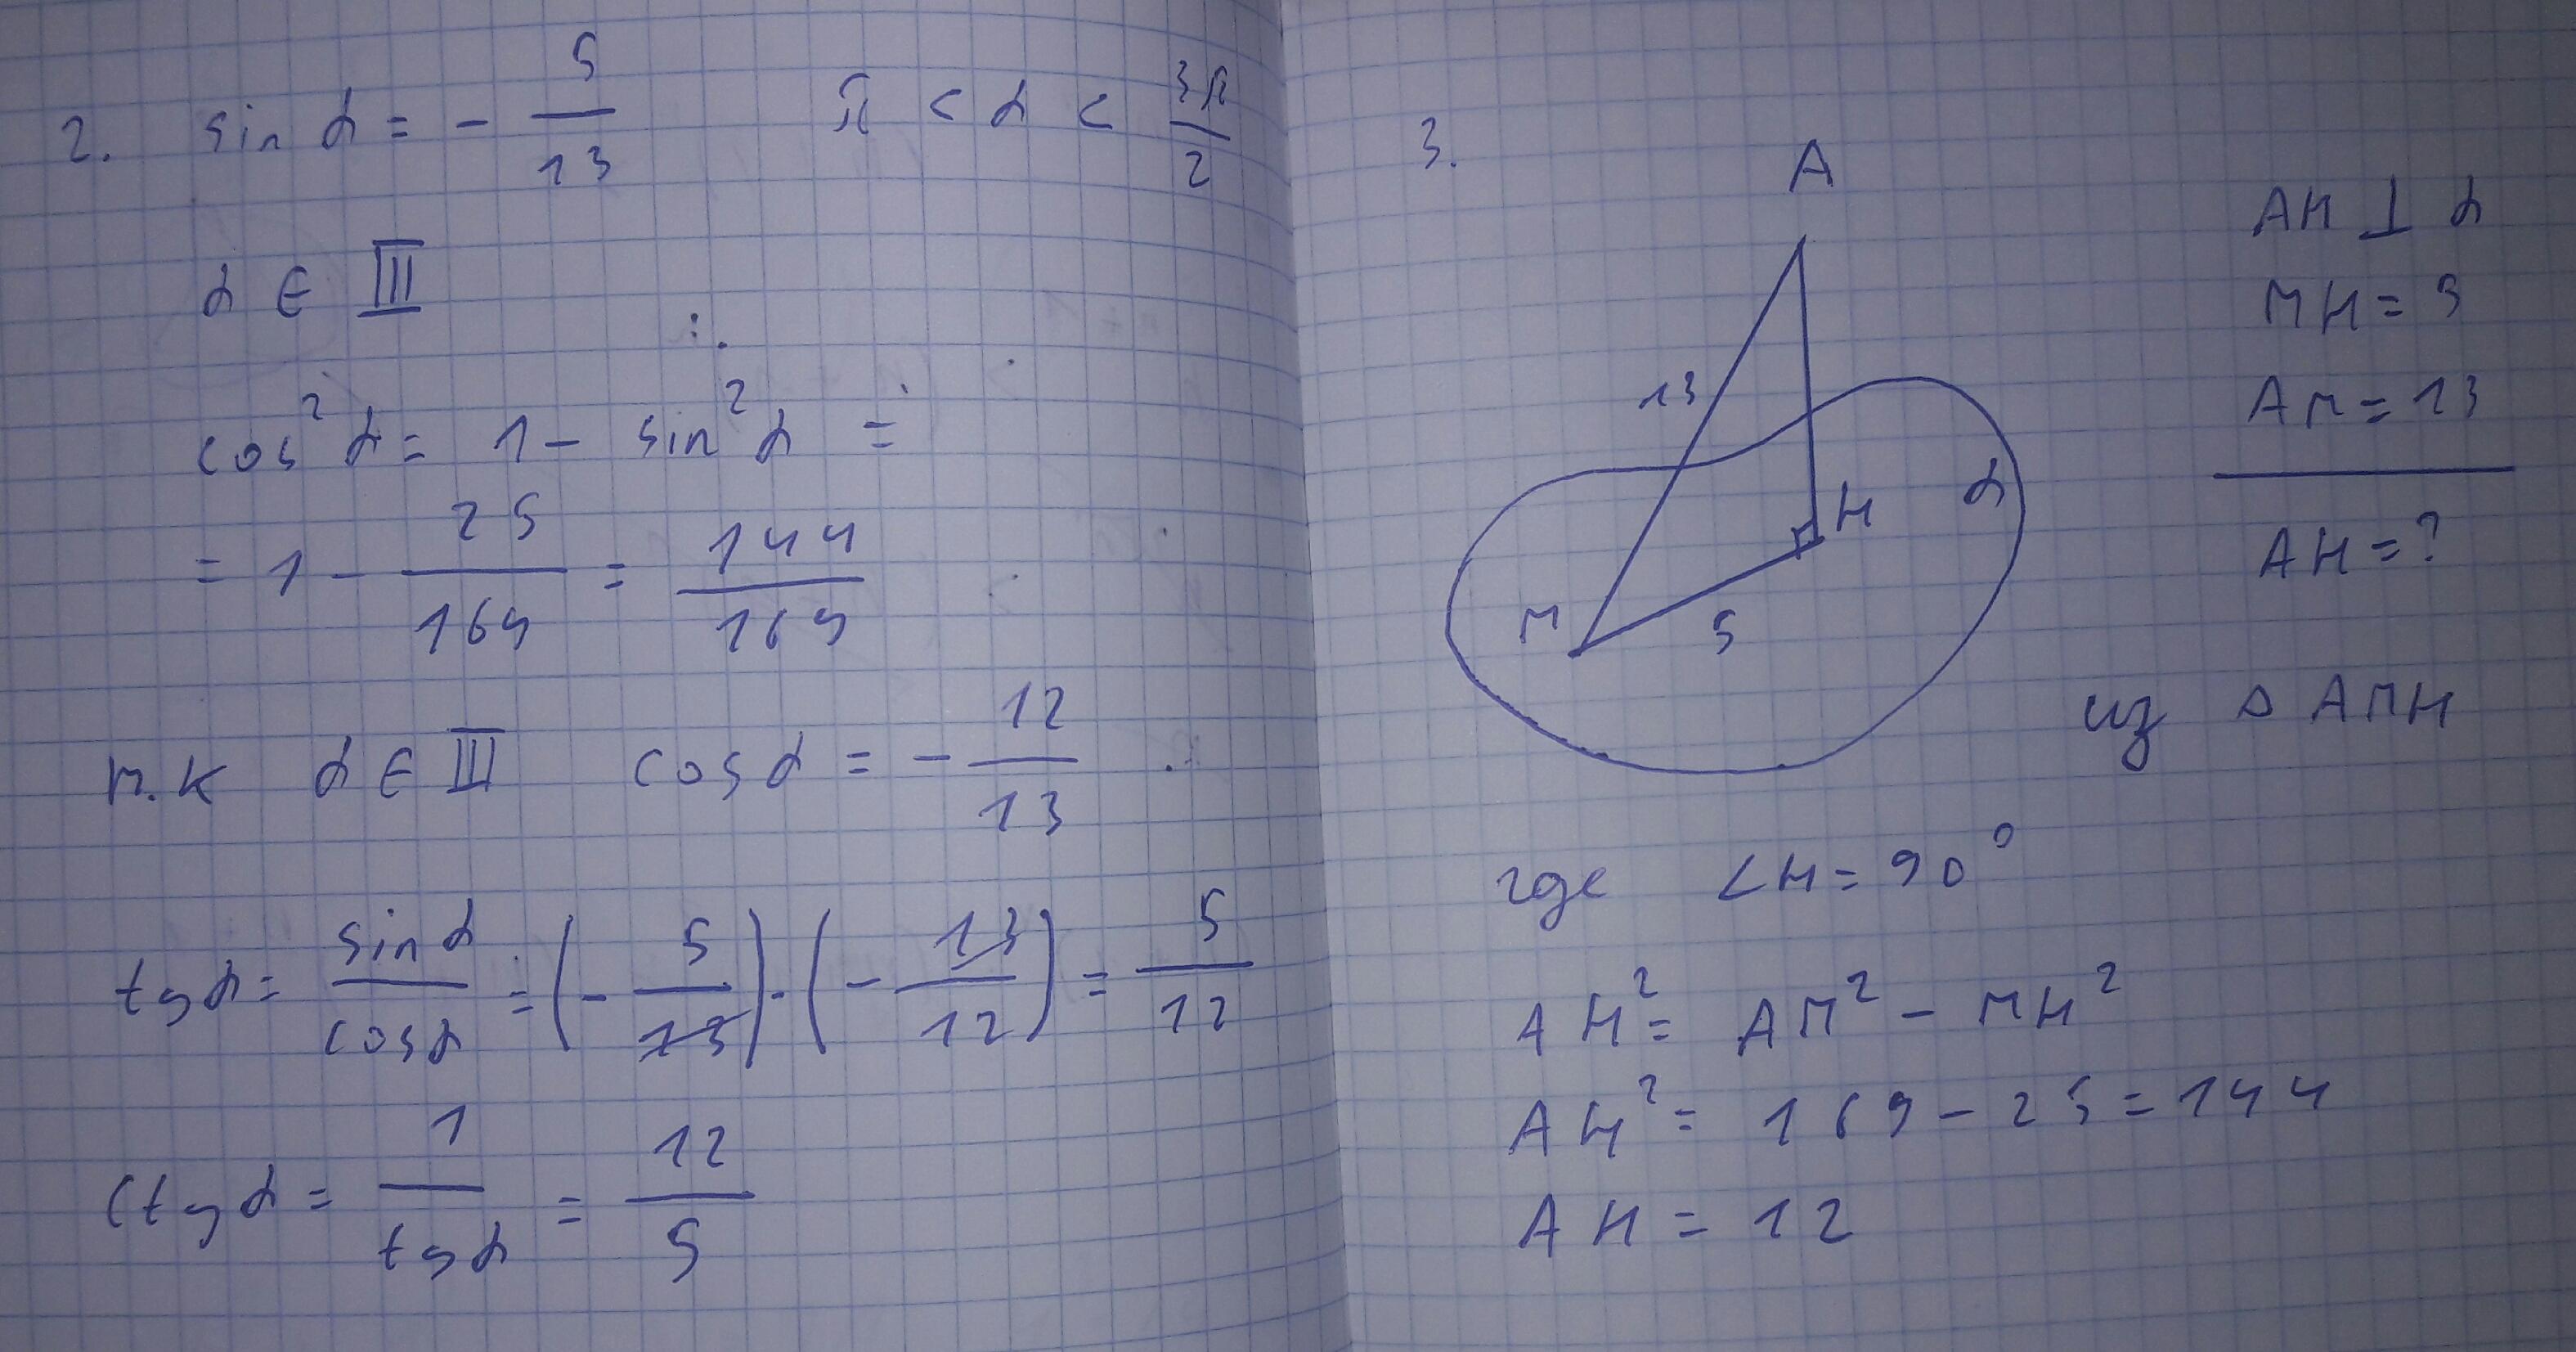 2. sin α = - 5/13    π < α < 3π/2
α ∈ III
cos² α = 1 - sin² α =
= 1 - 25/169 = 144/169
т.к α ∈ III cos α = - 12/13
tg α = sin α / cos α = (- 5/13) · (- 13/12) = 5/12
ctg α = 1 / tg α = 12/5
3.
A
13
H
α
M
5
AH ⊥ α
MH = 5
AM = 13
AH = ?
из △ AMH
где ∠H = 90°
AH² = AM² - MH²
AH² = 169 - 25 = 144
AH = 12